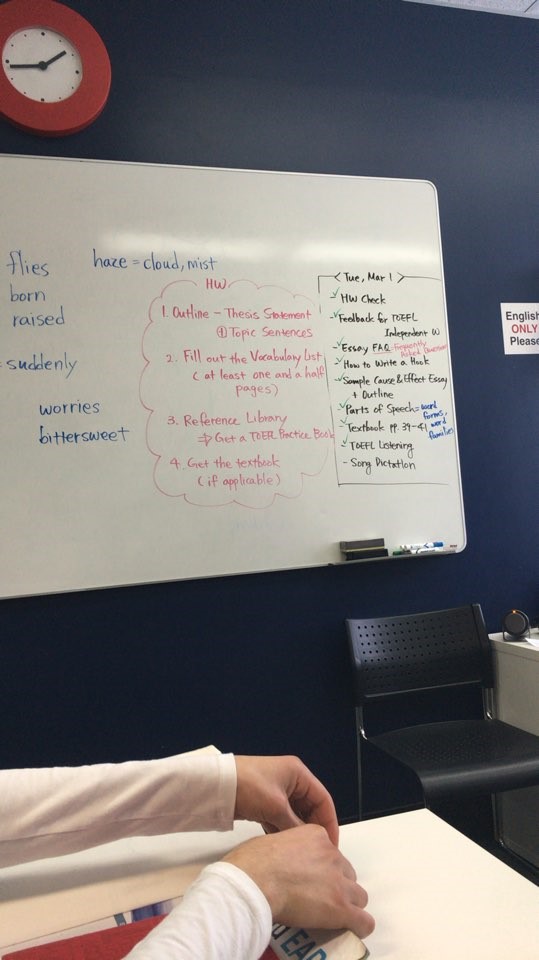 flies
born
raised
= suddenly
worries
bittersweet
haze = cloud, mist
HW
1. Outline - Thesis Statement
④ Topic Sentences
2. Fill out the Vocabulary List
( at least one and a half
pages)
3. Reference Library
⇒ Get a TOEFL Practice Book
4. Get the textbook
( if applicable)
< Tue, Mar 1 >
✓ HW Check
✓ Feedback for TOEFL
Independent W
✓ Essay FAQ = Frequently Asked Questions
✓ How to Write a Hook
✓ Sample Cause & Effect Essay
+ Outline
✓ Parts of Speech = word forms, word families
✓ Textbook pp. 39-41
✓ TOEFL Listening
- Song Dictation
English
ONLY
Please
EAD